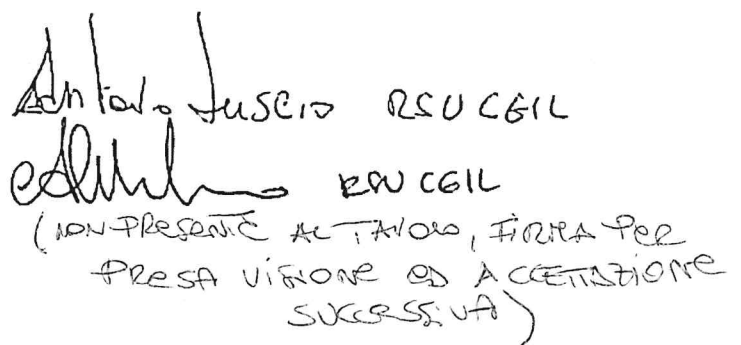 Antonio Fuscio RSU CGIL
RSU CGIL
(NON PRESENTE AL TAVOLO, FIRMA PER
PRESA VISIONE ED ACCETTAZIONE
SUCCESSIVA)